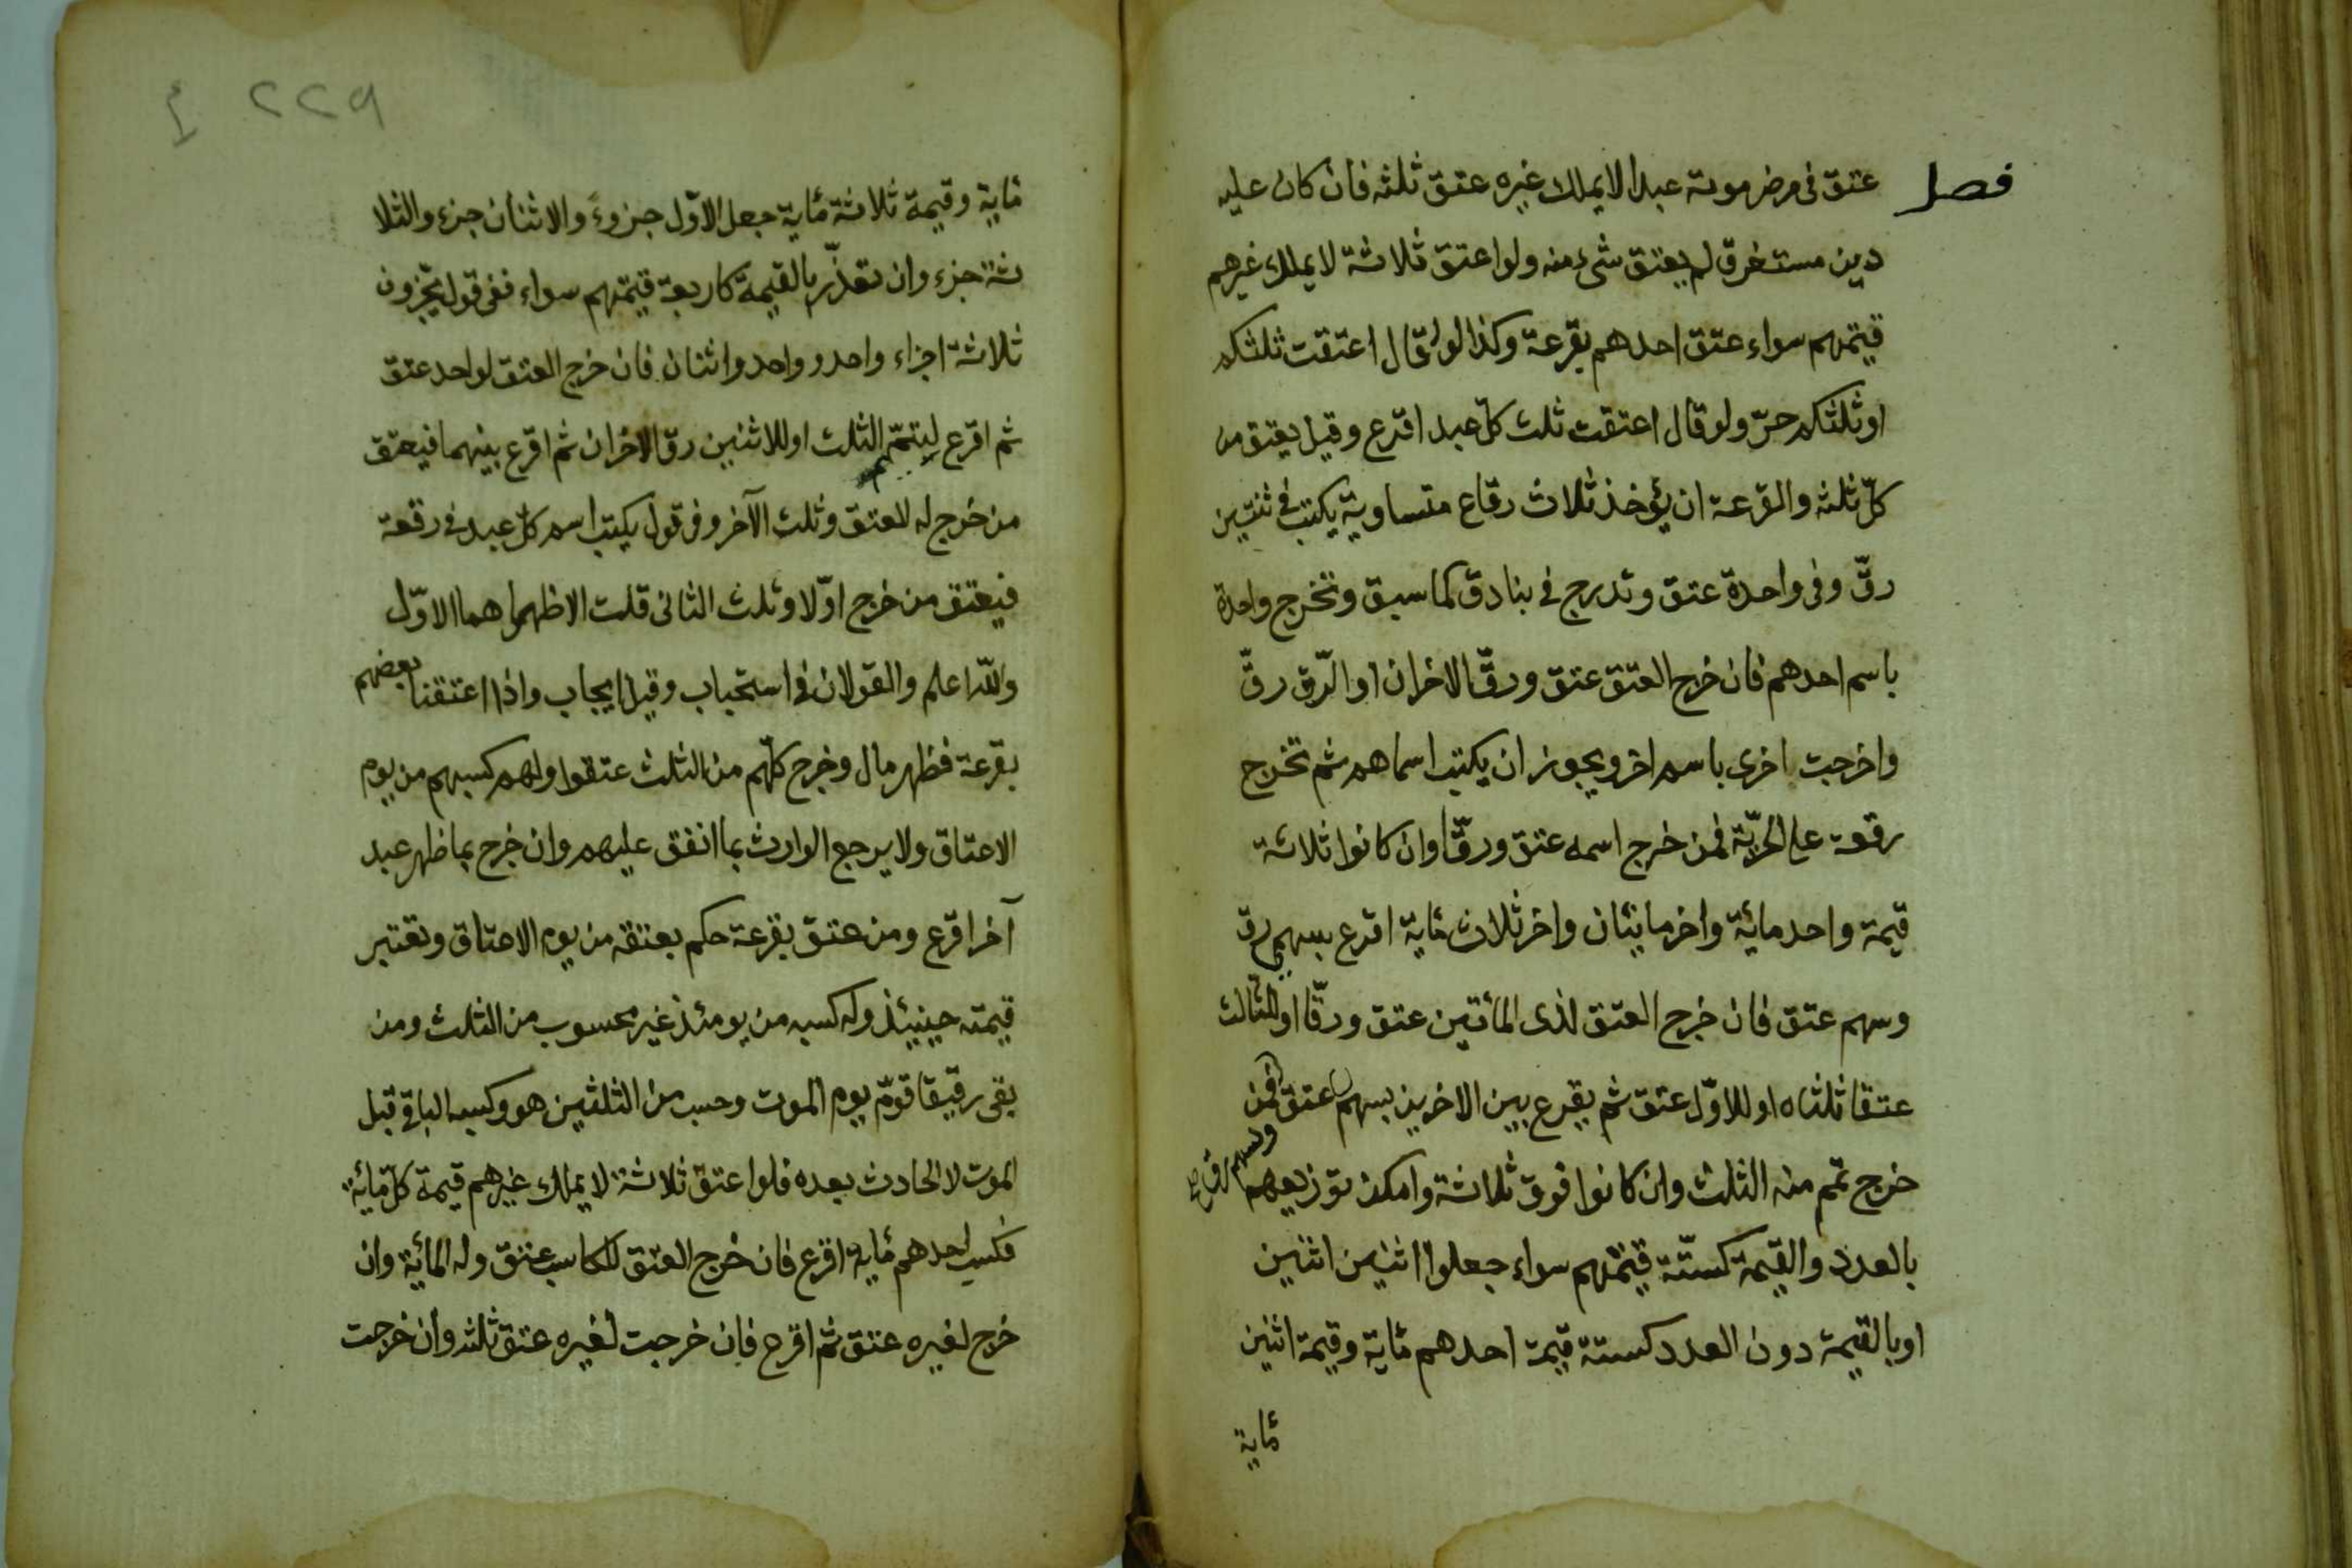 فصل عتق فى مرض موته عبدا لا يملك غيره عتق ثلثه فان كان عليه
دين مستغرق لم يعتق شىء منه ولو اعتق ثلاثة لا يملك غيرهم
قيمتهم سواء عتق احدهم بقرعة وكذا لو قال اعتقت ثلثكم
او ثلثكم حرّ ولو قال اعتقت ثلث كلّ عبد اقرع وقيل يعتق من
كلّ ثلثه والقرعة ان يؤخذ ثلاث رقاع متساوية يكتب فى ثنتين
رقّ وفى واحدة عتق وتدرج فى بنادق كما سبق وتخرج واحدة
باسم احدهم فان خرج العتق عتق ورقّ الاخران او الرّق رقّ
واخرجت اخرى باسم اخر ويجوز ان يكتب اسماهم ثم تخرج
رقعة على الحريّة فمن خرج اسمه عتق ورقّا وان كانوا ثلاثة
قيمة واحد مائة واخر مايتان واخر ثلاث مٔاية اقرع بسهمى رق
وسهم عتق فان خرج العتق لذى المأتين عتق ورقّا او للثّالث
عتقا ثلثاه او للاوّل عتق ثم يقرع بين الاخرين بسهم عتق فمن
وسهم رق صح
خرج تمم منه الثلث وان كانوا فوق ثلاثة وامكن توزيعهم
بالعدد والقيمة كستّة قيمتهم سواء جعلوا اثنين اثنين
او بالقيمة دون العدد كستة قيمة احدهم مٔاية وقيمة اثنين
مٔاية
٢٢٩
مٔاية وقيمة ثلاثة مٔاية جعل الاوّل جزوءً والاثنان جزء والثلا
ثة جزء وان تعذّر بالقيمة كاربعة قيمتهم سواء ففى قول يجّزون
ثلاثة اجزاء واحد وواحد واثنان فان خرج العتق لواحد عتق
ثم اقرع ليتمّم الثلث او للاثنين رقّ الاخران ثم اقرع بينهما فيعتق
من خرج له العتق وثلث الآخر وفى قول يكتب اسم كلّ عبد فى رقعة
فيعتق من خرج اوّلا وثلث الثانى قلت الاظهراهما الاوّل
واللّه اعلم والقولان فى استحباب وقيل ايجاب واذا اعتقنا بعضهم
بقرعة فظهر مال وخرج كلّهم من الثلث عتقوا ولهم كسبهم من يوم
الاعتاق ولا يرجع الوارث بما انفق عليهم وان خرج بما ظهر عبد
آخر اقرع ومن عتق بقرعة حكم بعتقه من يوم الاعتاق وتعتبر
قيمته حينيئذ وله كسبه من يومئذ غير محسوب من الثلث ومن
بقى رقيقا قوّم يوم الموت وحسب من الثلثين هو وكسبه الباقى قبل
الموت لا الحادث بعده فلو اعتق ثلاثة لا يملك غيرهم قيمة كلّ مٔاية
فكسب احدهم مٔاية اقرع فان خرج العتق للكاسب عتق وله المأية وان
خرج لغيره عتق ثم اقرع فان خرجت لغيره عتق ثلثه وان خرجت